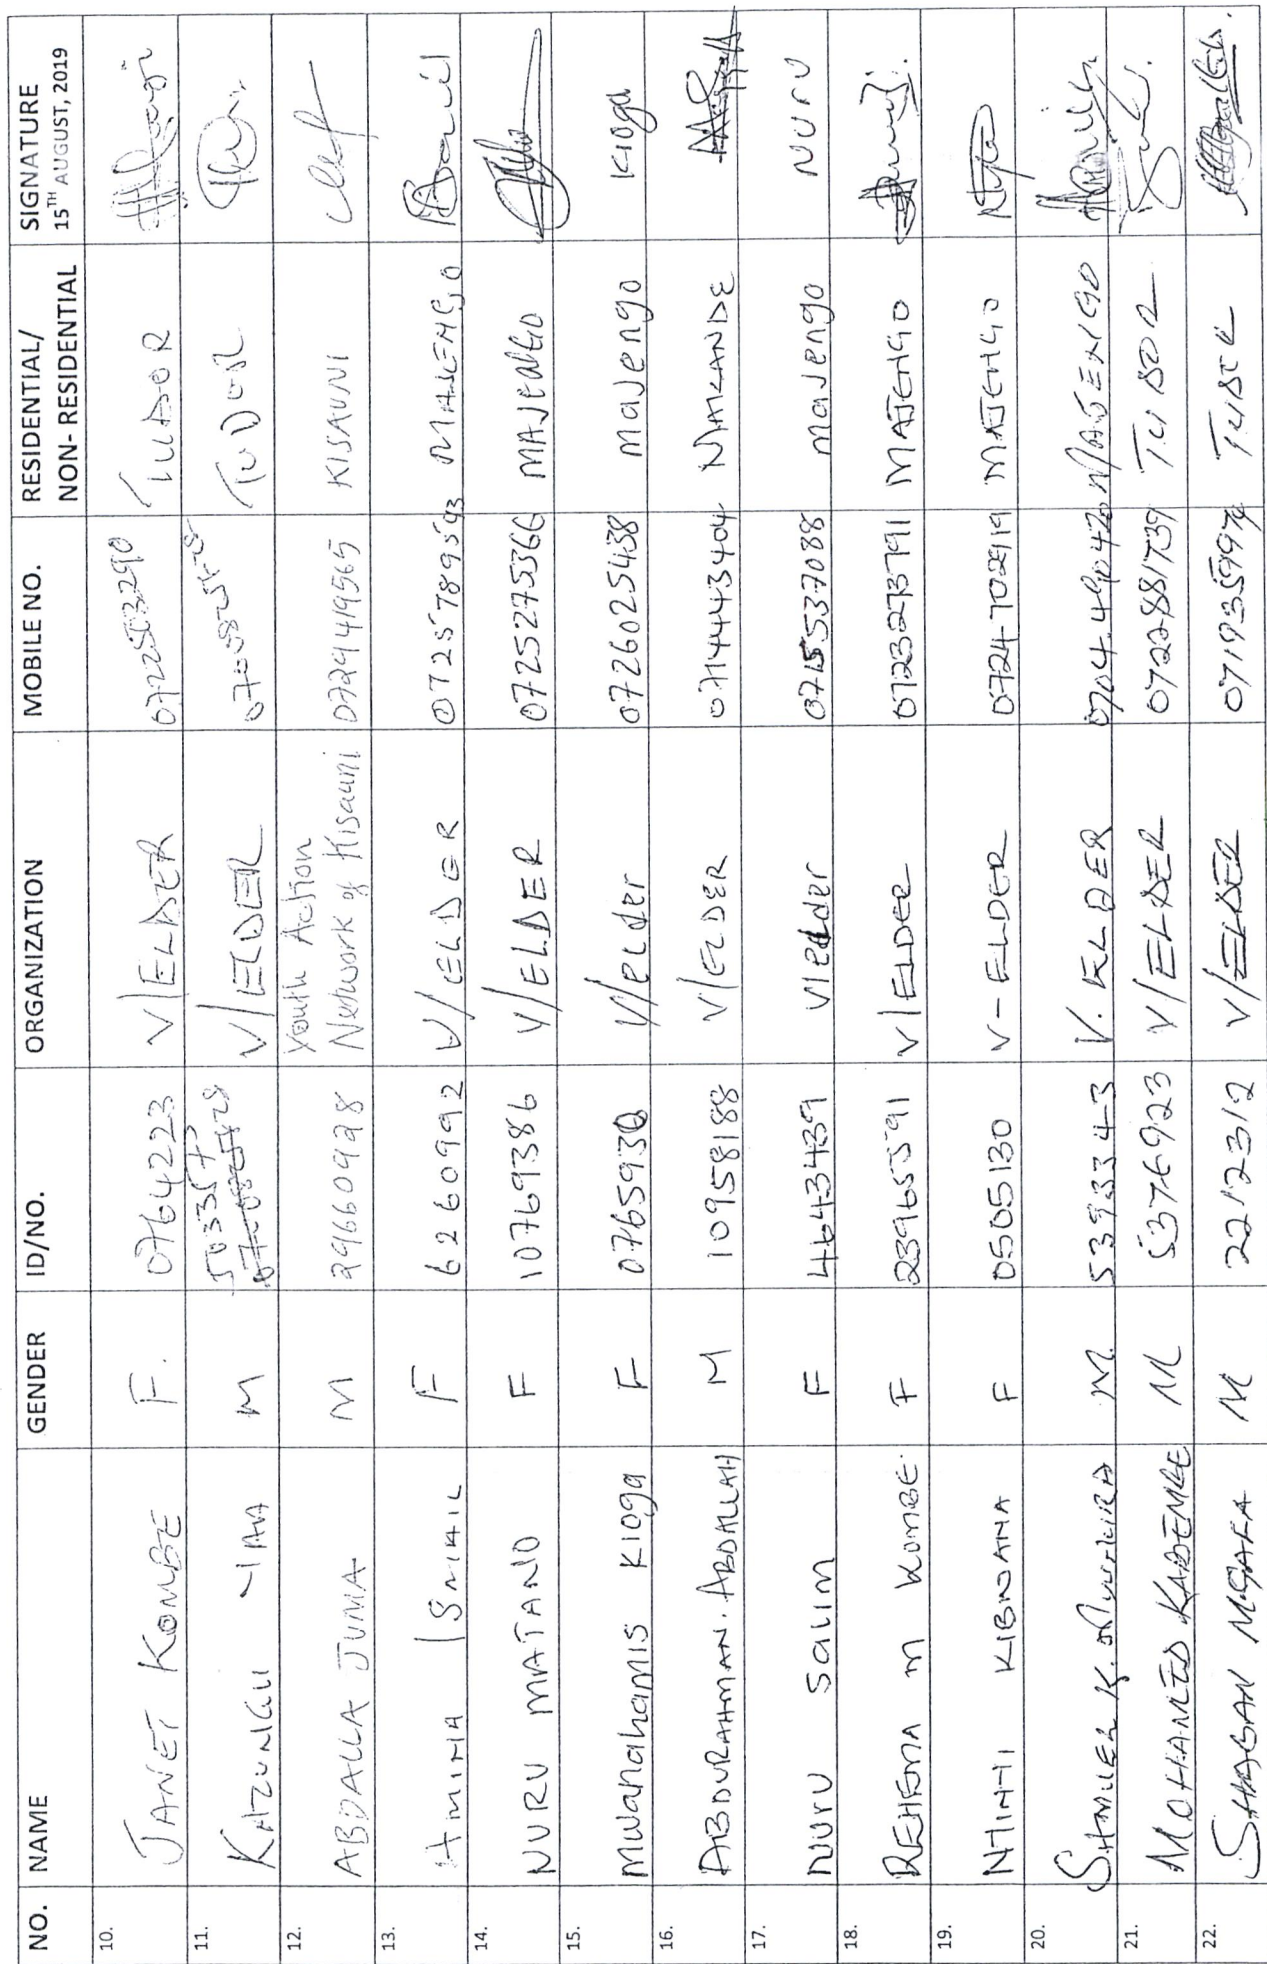 NO. NAME GENDER ID/NO. ORGANIZATION MOBILE NO. RESIDENTIAL/ NON- RESIDENTIAL SIGNATURE 15TH AUGUST, 2019
10. JANET KOMBE F. 0764223 V/ELDER TUDOR
11. KATZUNGU YAA M V/ELDER TUDOR
12. ABDALLA JUMA M 29660928 Youth Action Network of Kisauni 0729419565 KISAUNI
13. AMINA ISMAIL F 6260992 V/ELDER 0725789593 MAJENGO
14. NURU MATANO F 10769386 V/ELDER 0725275366 MAJENGO
15. Mwanahamis Kioga F V/elder 0726025438 majengo Kioga
16. ABDURAHMAN. ABDALLAH M 10958188 V/ELDER 0714443404 MAKANDE
17. NUrU SalIm F 4643439 V/elder 0715537088 majengo NUrU
18. REHEMA m KOMBE. F 239655591 V/ELDER 0723273791 MAJENGO
19. KIBWANA F 0505130 V-ELDER 0724-702919 MAJENGO
20. K. M. 5393343 V. ELDER MAJENGO
21. MOHAMED M 5376923 V/ELDER 0722881739 TUDOR
22. SHABAN M 2212312 V/ELDER